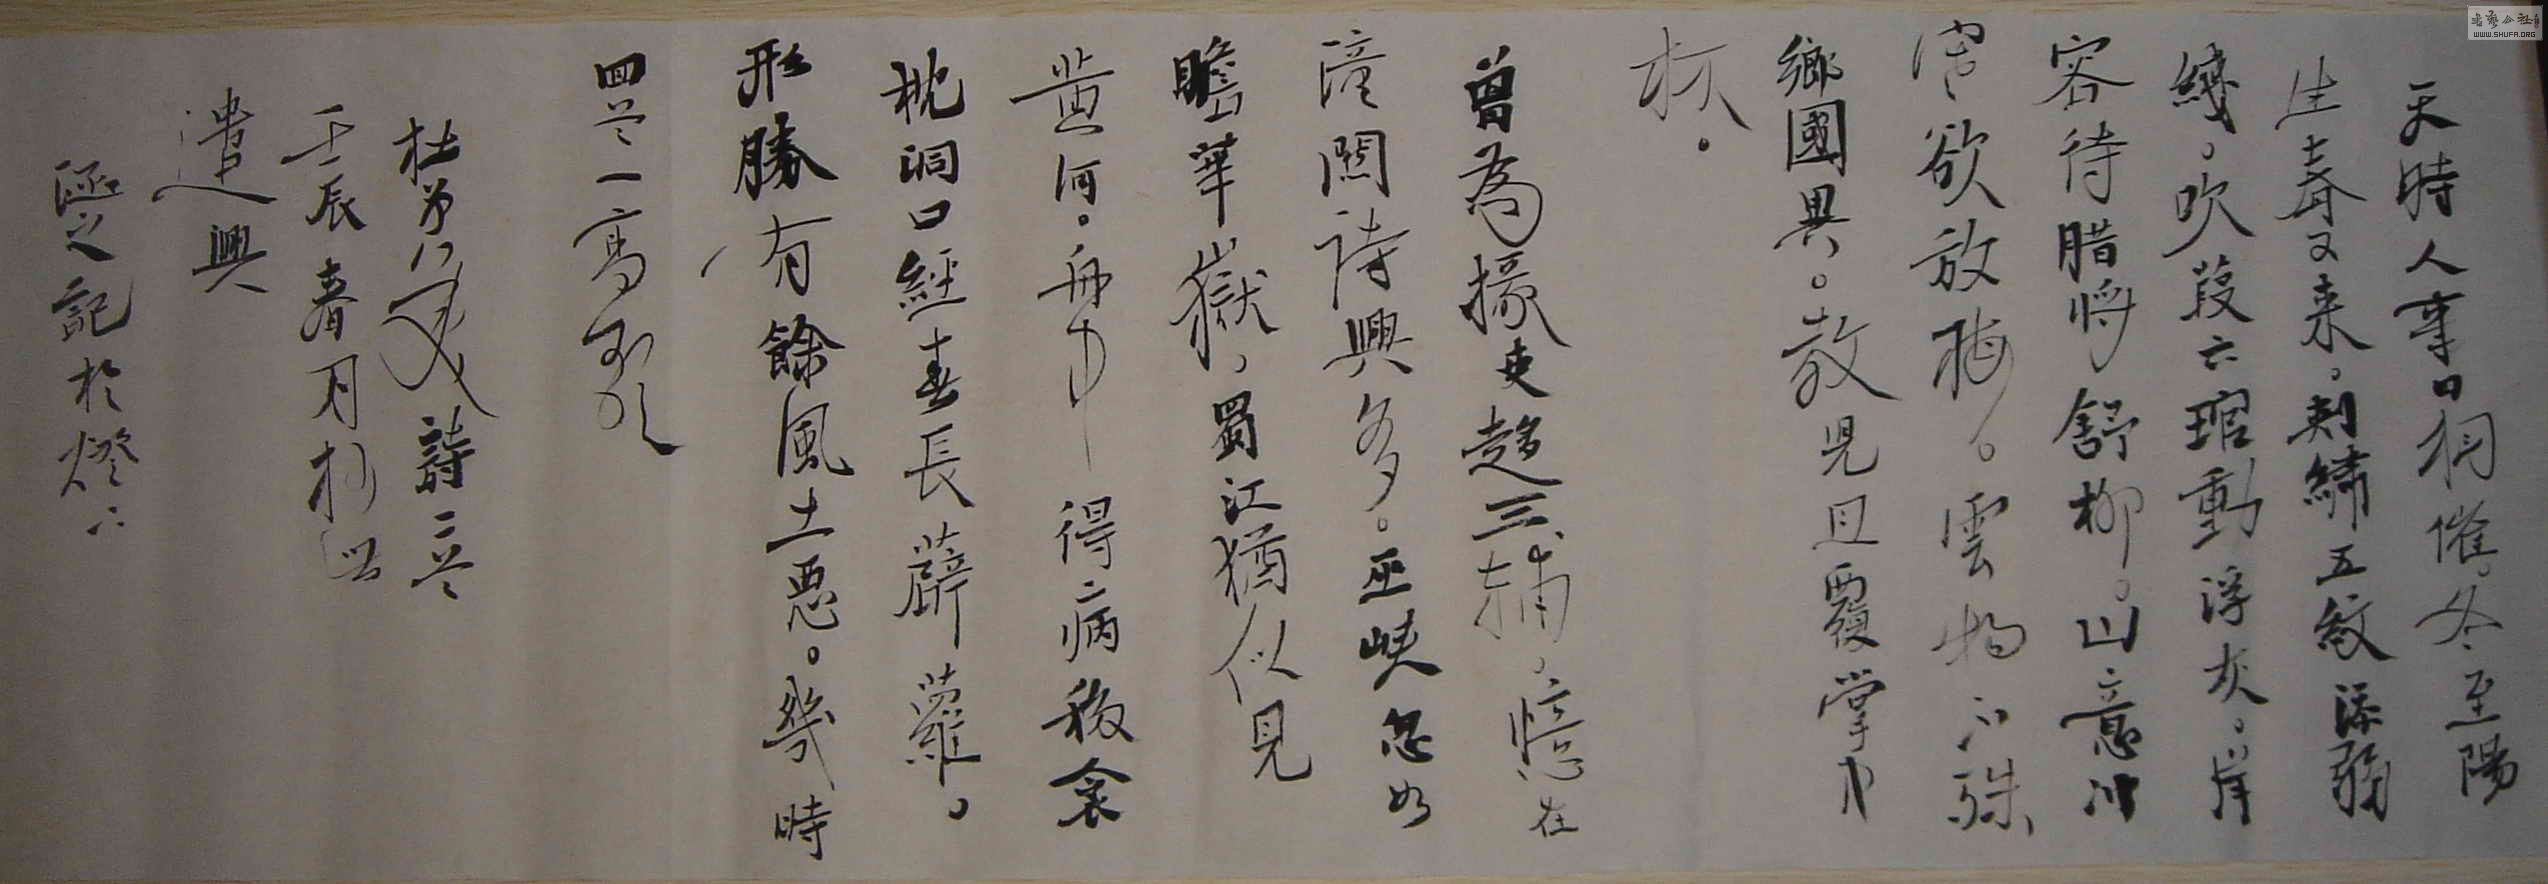 天時人事日相催。冬至陽
生春又来。刺繡五紋添弱
綫。吹葭六琯動浮灰。岸
容待腊将舒柳。山意冲
寒欲放梅。雲物不殊
鄉國異。教兒且覆掌中
杯。
曾為掾吏趨三輔，憶在
潼關詩興多。巫峽忽如
瞻華嶽，蜀江猶似見
黄河。舟中得病移衾
枕洞口經春長薜蘿。
形勝有餘風土惡。幾時
回首一高歌
杜甫詩二首
壬辰春月
遣興
記於燈下
书艺公社
WWW.SHUFA.ORG